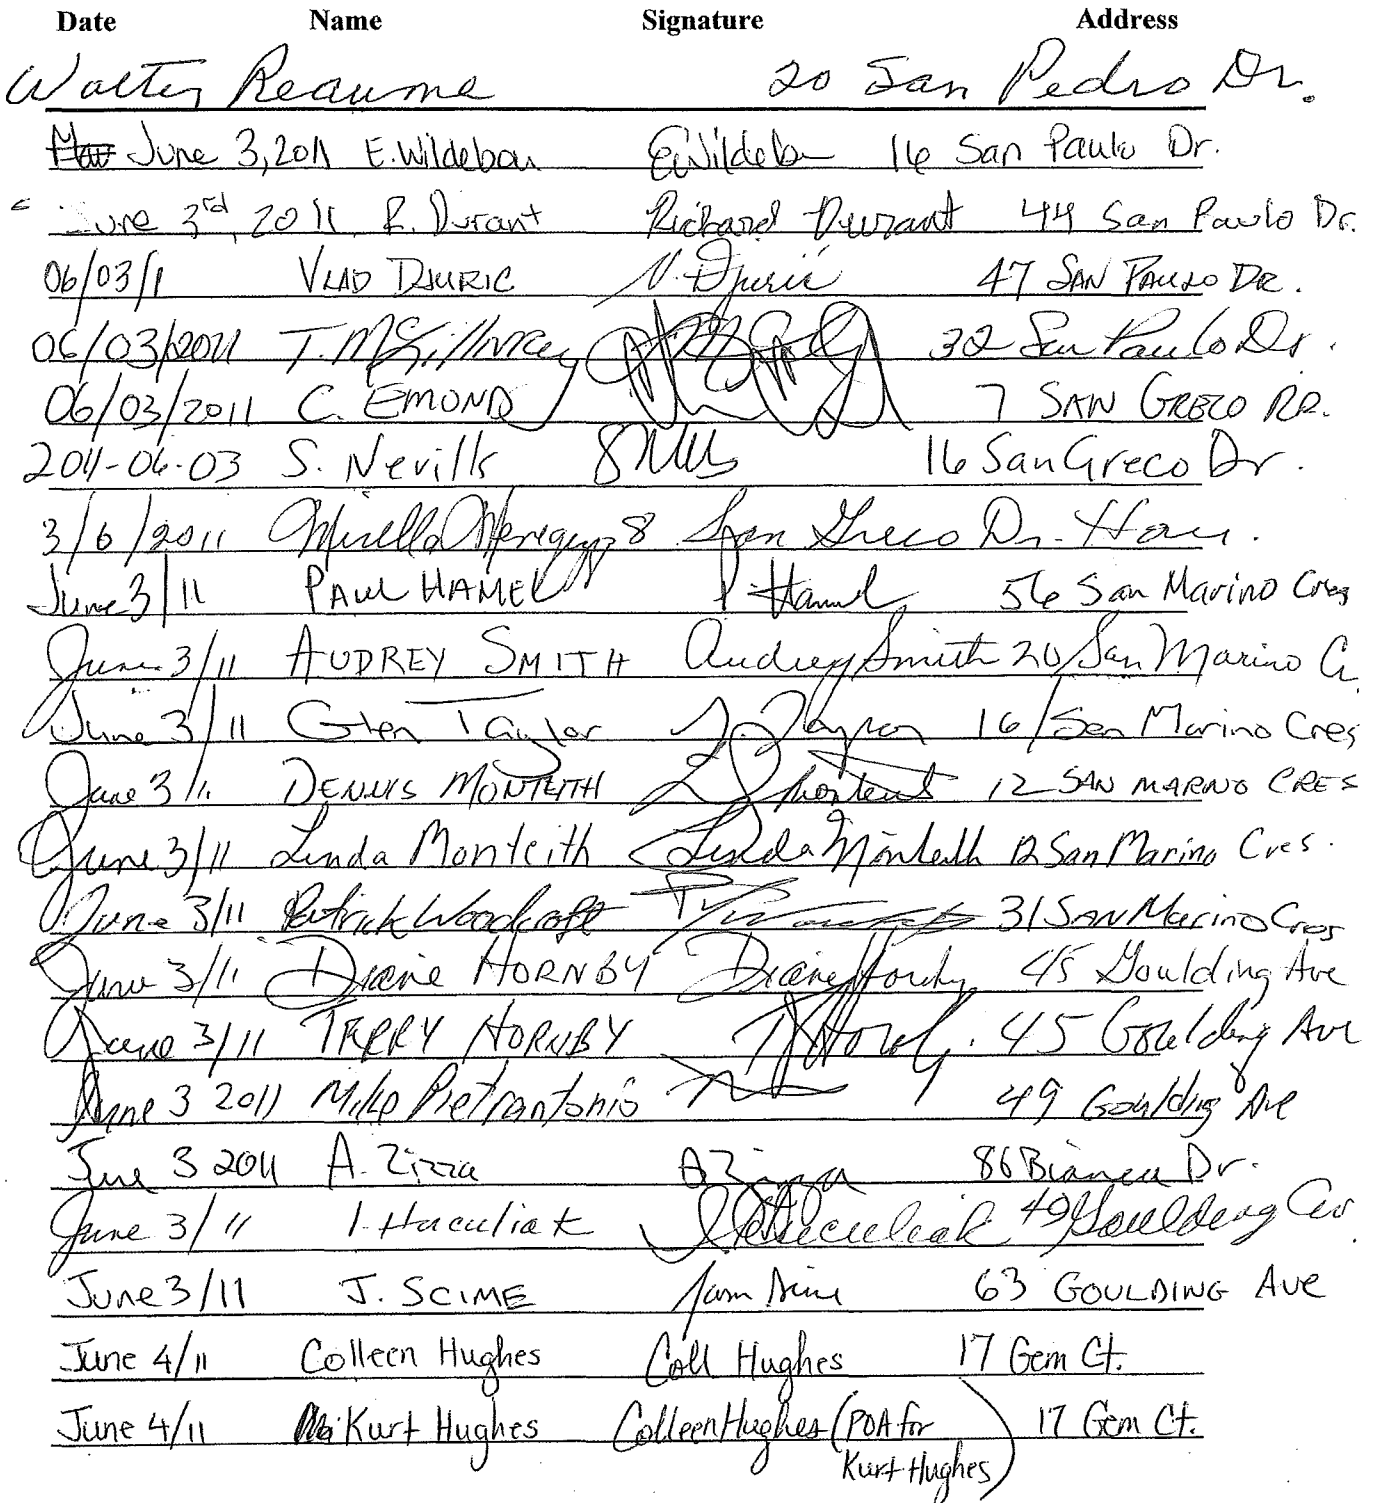 Date Name Signature Address
Walter Reaume 20 San Pedro Dr.
June 3, 2011 E. Wildeboer 16 San Paulo Dr.
June 3rd, 2011 R. Durant Richard Durrant 44 San Paulo Dr.
06/03/1 VLAD DJURIC V. Djuric 47 SAN PAULO DR.
06/03/2011 T. McGillivray 32 San Paulo Dr.
06/03/2011 C. EMOND 7 SAN GRECO RD.
2011-06-03 S. Nevills 16 San Greco Dr.
3/6/2011 Mirella 8 San Greco Dr. Ham.
June 3/11 PAUL HAMEL P Hamel 56 San Marino Cres
June 3/11 AUDREY SMITH Audrey Smith 20 San Marino Cr.
June 3/11 Glen Taylor G. Taylor 16 San Marino Cres
June 3/11 DENNIS MONTEITH Monteith 12 SAN MARINO CRES
June 3/11 Linda Monteith Linda Monteith 12 San Marino Cres.
June 3/11 Patrick Woodcroft 31 SAN Marino Cres
June 3/11 Diane HORNBY Diane Hornby 45 Goulding Ave
June 3/11 TERRY HORNBY 45 Goulding Ave
June 3 2011 Mike Pietrantonio 49 Goulding Ave
June 3 2011 A. Zizza A Zizza 86 Bianca Dr.
June 3/11 I. Huculiak Huculiak 49 Goulding Av
June 3/11 J. SCIME 63 GOULDING AVE
June 4/11 Colleen Hughes Coll Hughes 17 Gem Ct.
June 4/11 Kurt Hughes Colleen Hughes (POA for Kurt Hughes) 17 Gem Ct.